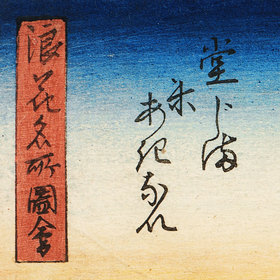 堂じま
米
あきない
浪花名所圖會